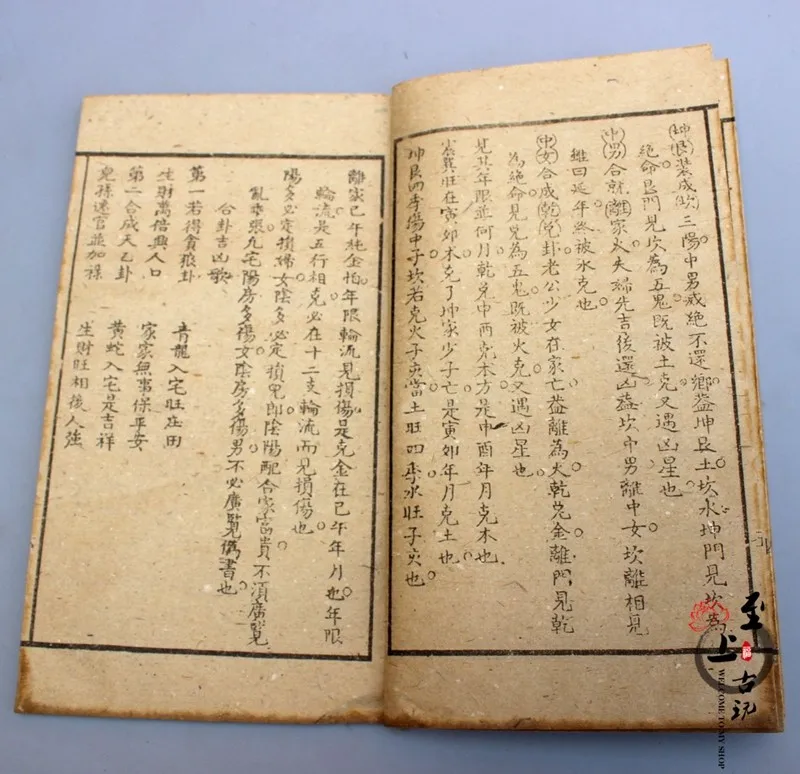 坤艮裝成坎三陽中男戒絕不還鄉盖坤艮土坎水坤門見坎為
絕命艮門見坎為五鬼既被土克又遇凶星也
中男合就離家火夫婦先吉後還凶盖坎中男離中女坎離相見
雖曰延年終被水克也
中女合成乾兌卦老公少女在家亡盖離為火乾兌金離門見乾
為絕命見兌為五鬼既被火克又遇凶星也
見其年限並何月乾兌中西克木方是申酉年月克木也
震巽旺在寅卯木克了坤家少子亡是寅卯年月克土也
坤艮四季傷中子坎若克火子亥當土旺四季水旺子亥也
離家巳午純金怕年限輪流見損傷是克金在巳午年月也年限
輪流是五行相克必在十二支輪流而見損傷也
陽多必定損婦女陰多必定損男即陰陽配合家富貴不須廣覽
亂乖張九宅陽房多傷女陰房多傷男不必廣覽偽書也
合卦吉凶歌
第一若得貪狼卦 青龍入宅旺庄田
生財萬倍興人口 家家無事保平安
第二合成天乙卦 黃蛇入宅是吉祥
兒孫遂官並加祿 生財旺相後人強
至上古玩
WELCOME TO MY SHOP